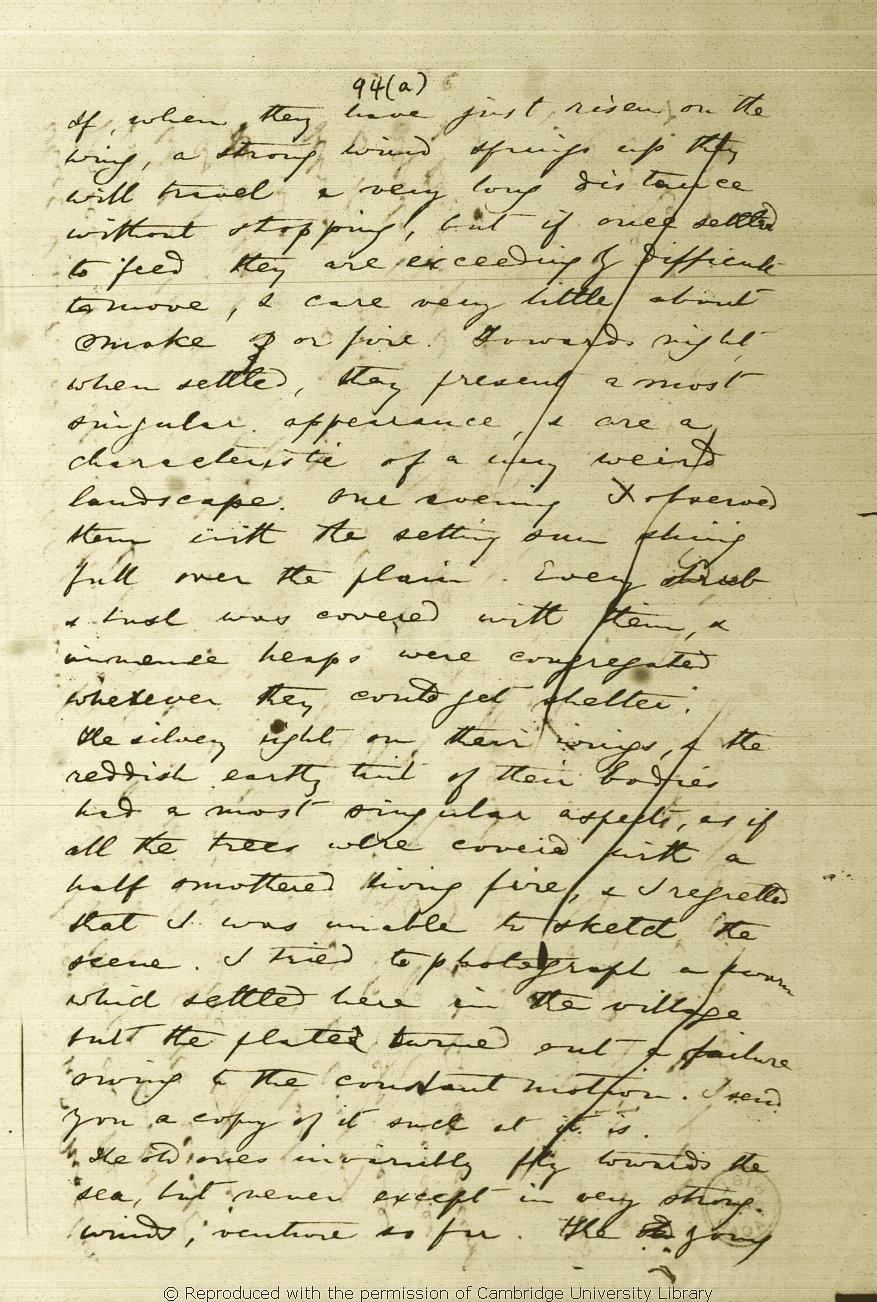 94(a)
If, when they have just risen on the
wing, a strong wind springs up they
will travel a very long distance
without stopping, but if once settled
to feed they are exceedingly difficult
to move, & care very little about
smoke or fire. Towards night,
when settled, they present a most
singular appearance, & are a
characteristic of a very weird
landscape. One evening I observed
them with the setting sun shing
full over the plain. Every shrub
& bush was covered with them, &
immense heaps were congregated
wherever they could get shelter.
The silvery light on their wings, & the
reddish earthy tint of their bodies
had a most singular aspect, as if
all the trees were covered with a
half smothered living fire, & I regretted
that I was unable to sketch the
scene. I tried to photograph a swarm
which settled here in the village
but the plates turned out a failure
owing to the constant motion. I send
you a copy of it such at it is.
The old ones invariably fly towards the
sea, but never except in very strong
winds, venture so far. The young
© Reproduced with the permission of Cambridge University Library